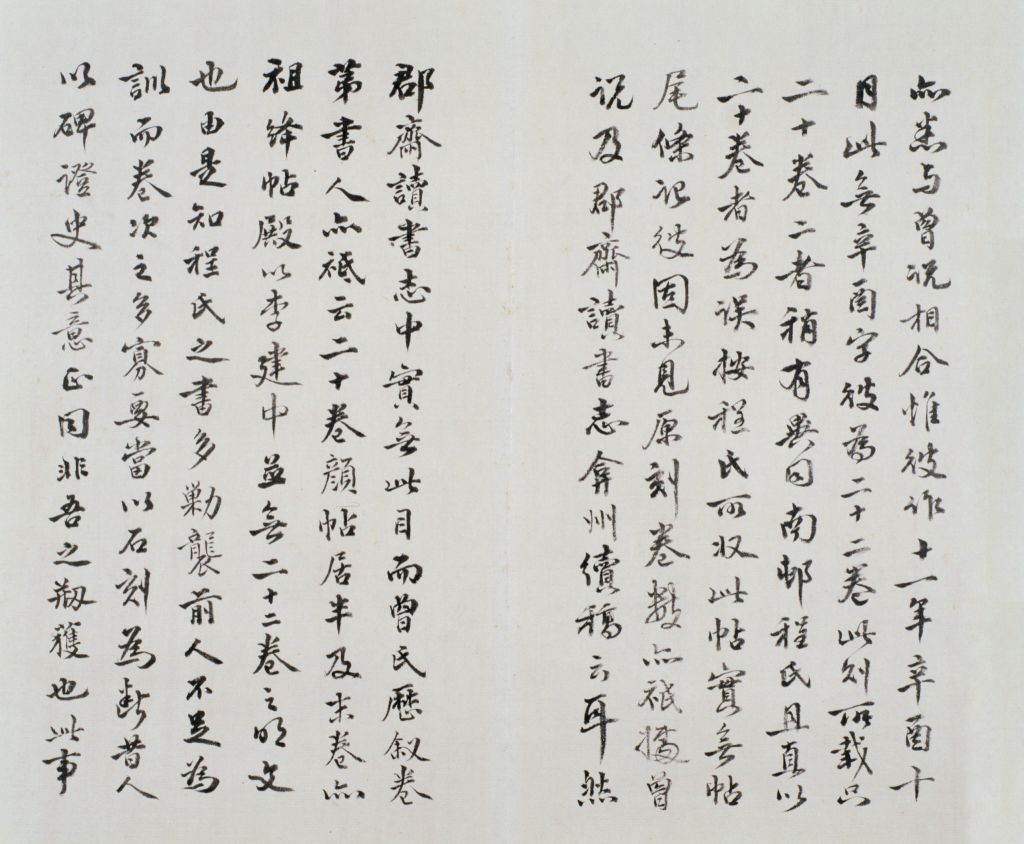 亦悉与曾说相合惟彼作十一年辛酉十
月此無辛酉字彼為二十二卷此則所載只
二十卷二者稍有異同南邨程氏且真以
二十卷者為誤按程氏所收此帖實無帖
尾條記彼固未見原刻卷數亦祇據曾
说及郡齋讀書志弇州續稿云耳然
郡齋讀書志中實無此目而曾氏歷叙卷
第書人亦祇云二十卷顔帖居半及末卷亦
祖絳帖殿以李建中並無二十二卷之明文
也由是知程氏之書多勦襲前人不足為
訓而卷次之多寡要當以石刻為斷昔人
以碑證史其意正同非吾之刱獲也此事